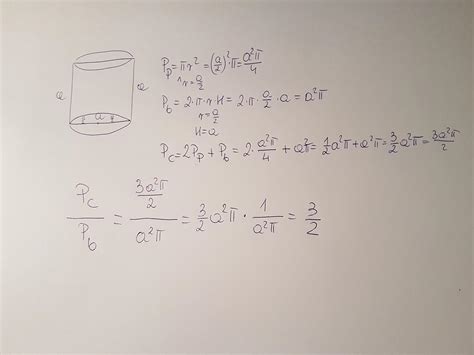 P_p = πr² = (a/2)²·π = a²π/4
r = a/2
a a
P_b = 2·π·r·H = 2·π·a/2·a = a²π
r = a/2
a
H = a
P_c = 2P_p + P_b = 2·a²π/4 + a²π = 1/2 a²π + a²π = 3/2 a²π = 3a²π/2
P_c/P_b = (3a²π/2)/(a²π) = 3/2 a²π · 1/(a²π) = 3/2